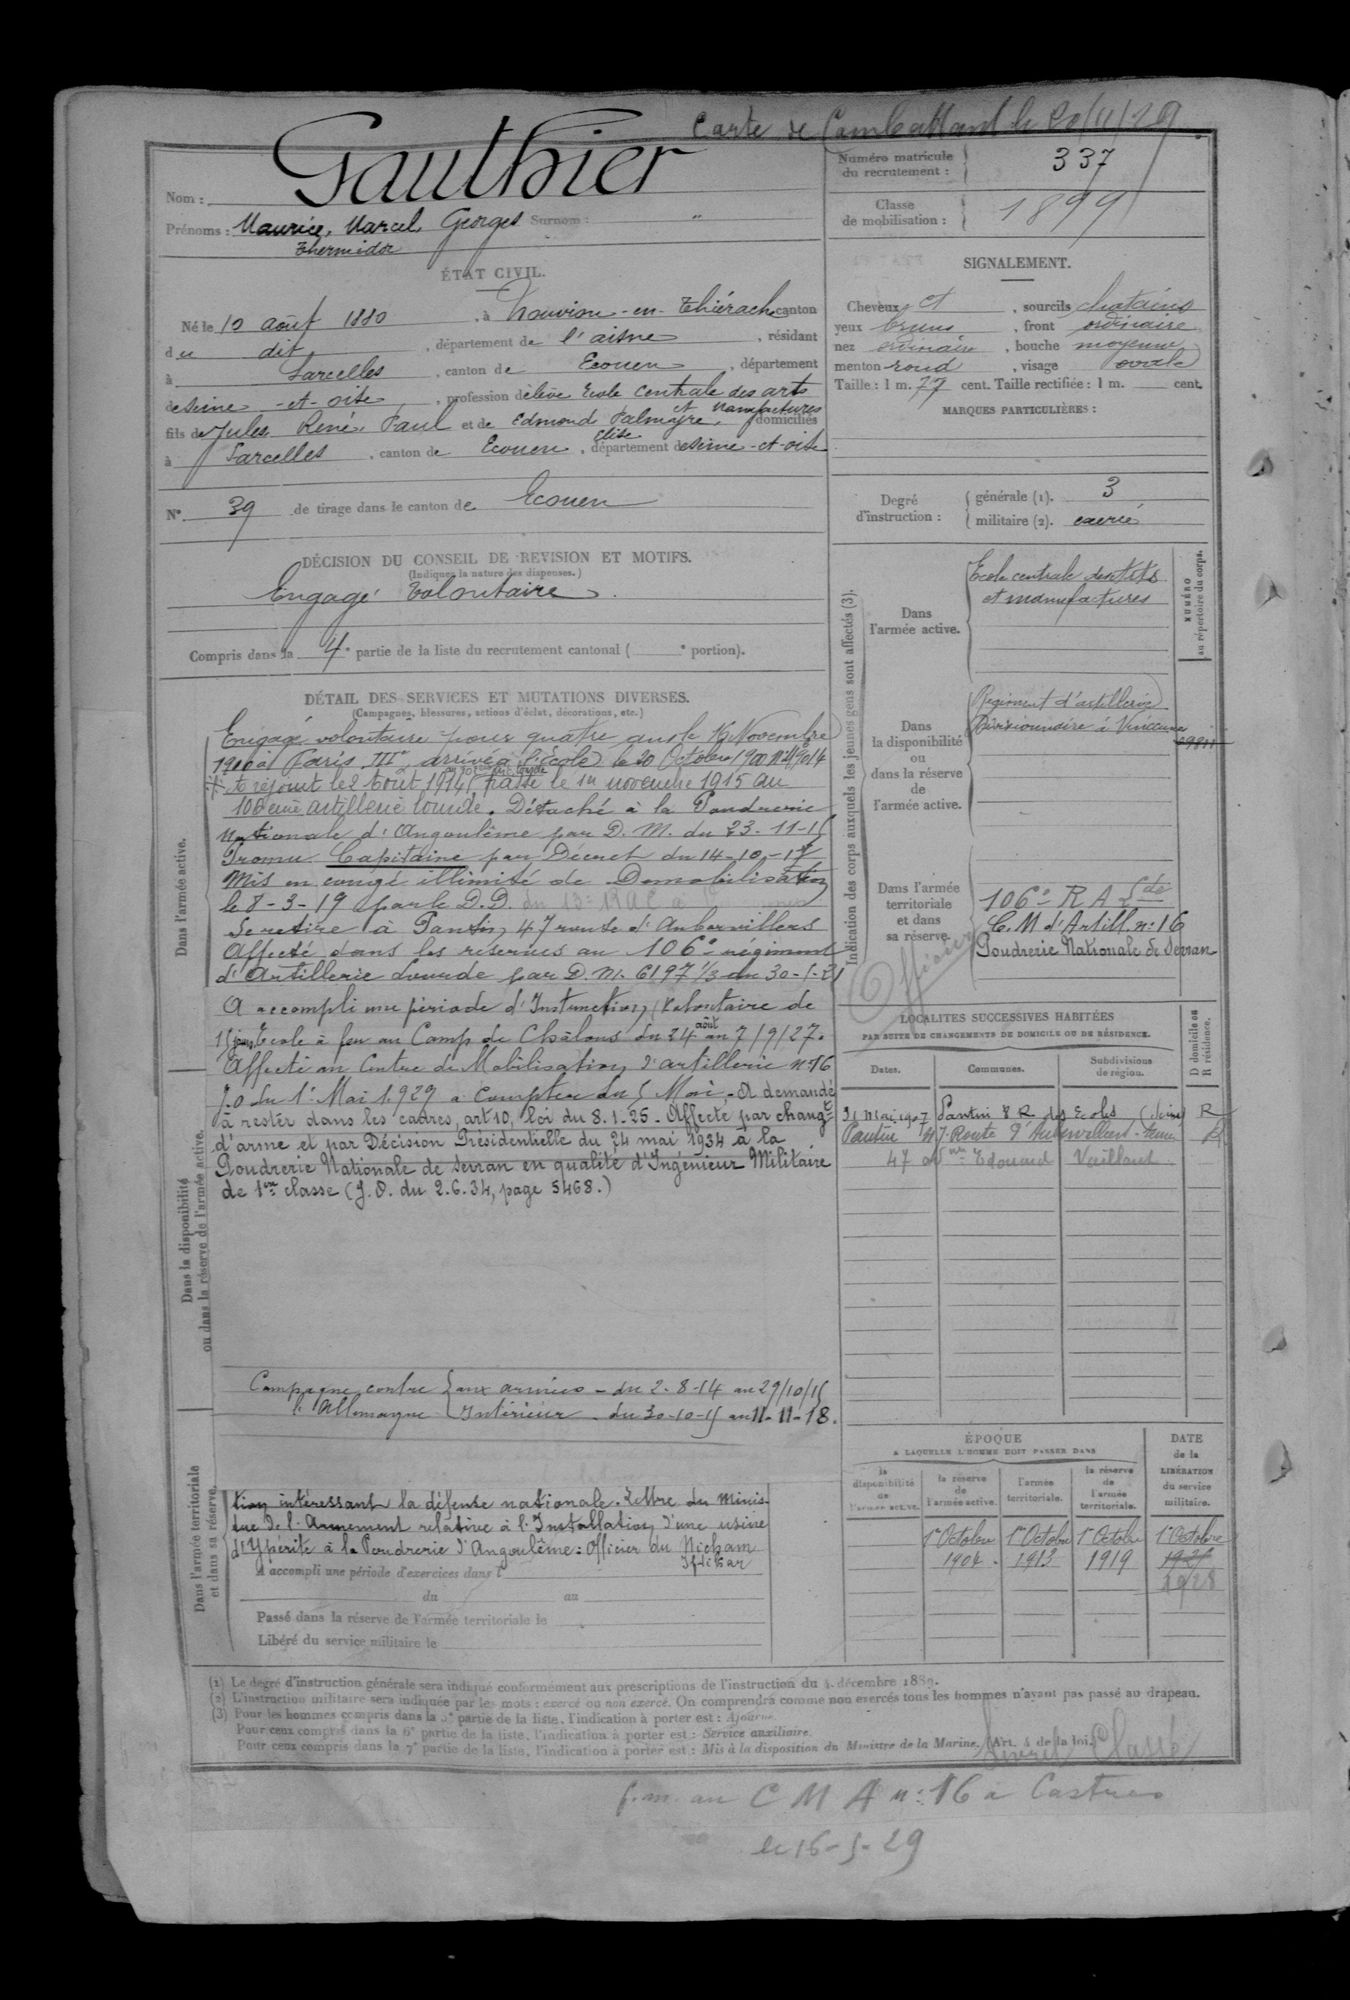 Carte de Combattant le 20/11/29
Nom : Gauthier
Prénoms : Maurice, Marcel, Georges Surnom : "
Thermidor
Numéro matricule du recrutement : 337
Classe de mobilisation : 1899
ÉTAT CIVIL.
Né le 10 août 1880, à Nouvion-en-Thiérache canton
du dit, département de l'aisne, résidant
à Sarcelles, canton de Ecouen, département
de seine-et-oise, profession d'élève Ecole centrale des arts
et manufactures
fils de Jules René, Paul et de Edmond Palmyre, domiciliés
Elise
à Sarcelles, canton de Ecouen, département de seine-et-oise
N° 39 de tirage dans le canton de Ecouen
SIGNALEMENT.
Cheveux et, sourcils chatains
yeux bruns, front ordinaire
nez ordinaire, bouche moyenne
menton rond, visage ovale
Taille : 1 m. 77 cent. Taille rectifiée : 1 m. cent.
MARQUES PARTICULIÈRES :
Degré d'instruction : générale (1). 3
militaire (2). exercé
DÉCISION DU CONSEIL DE REVISION ET MOTIFS.
(Indiquer la nature des dispenses.)
Engagé Volontaire
Compris dans la 4e partie de la liste du recrutement cantonal ( e portion).
DÉTAIL DES SERVICES ET MUTATIONS DIVERSES.
(Campagnes, blessures, actions d'éclat, décorations, etc.)
Dans l'armée active.
Engagé volontaire pour quatre ans le 16 Novembre
1900 à Paris, IIIe, arrivé à l'Ecole le 20 Octobre 1900
A rejoint le 2 Août 1914 passé le 1er novembre 1915 au
106ème artillerie lourde. Détaché à la Poudrerie
Nationale d'Angoulême par D. M. du 23-11-15
Promu Capitaine par Décret du 14-10-17
Mis en congé illimité de Démobilisation
le 8-3-19 par le D.D. du 13e RAC à
Se retire à Pantin, 47 route d'Aubervilliers
Affecté dans les réserves au 106e régiment
d'Artillerie Lourde par D. M. 6197 1/3 du 30-5-21
A accompli une période d'Instruction (Volontaire de
15 jours) Ecole à feu au Camp de Châlons du 24 août au 7/9/27.
Affecté au Centre de Mobilisation d'artillerie n°16
J.O du 1er Mai 1929 à compter du 5 Mai. A demandé
à rester dans les cadres, art 10, loi du 8.1.25. Affecté par changt
d'arme et par Décision Présidentielle du 24 mai 1934 à la
Poudrerie Nationale de Sevran en qualité d'Ingénieur Militaire
de 1ère classe (J.O. du 2.6.34, page 5468.)
Dans la disponibilité ou dans la réserve de l'armée active.
Campagne contre l'Allemagne { aux armées - du 2-8-14 au 29/10/15
Intérieur - du 30-10-15 au 11-11-18.
Dans l'armée territoriale et dans sa réserve.
tion intéressant la défense nationale. Lettre du Minis-
tre de l'Armement relative à l'Installation d'une usine
d'Ypérite à la Poudrerie d'Angoulême : Officier du Nicham
Iftikar
A accompli une période d'exercices dans l
du au
Passé dans la réserve de l'armée territoriale le
Libéré du service militaire le
Indication des corps auxquels les jeunes gens sont affectés (3).
Dans l'armée active.
Ecole centrale des Arts
et manufactures
NUMÉRO au répertoire du corps.
Dans la disponibilité ou dans la réserve de l'armée active.
Régiment d'artillerie
Divisionnaire à Vincennes
Dans l'armée territoriale et dans sa réserve.
106e R A Lde
C. M d'Artill. n° 16
Poudrerie Nationale de Sevran
Officier
LOCALITES SUCCESSIVES HABITÉES
PAR SUITE DE CHANGEMENTS DE DOMICILE OU DE RÉSIDENCE.
Dates. Communes. Subdivisions de région. D domicile ou R résidence.
31 Mai 1907 Pantin 8 R des Ecoles (Seine) R
Pantin 47 Route d'Aubervilliers Seine
47 avenue Edouard Vaillant
ÉPOQUE
A LAQUELLE L'HOMME DOIT PASSER DANS
la disponibilité de l'armée active.
la réserve de l'armée active.
l'armée territoriale.
la réserve de l'armée territoriale.
DATE de la LIBÉRATION du service militaire.
1er Octobre 1904. 1er Octobre 1913 1er Octobre 1919 1er Octobre
1928
(1) Le degré d'instruction générale sera indiqué conformément aux prescriptions de l'instruction du 4 décembre 1889.
(2) L'instruction militaire sera indiquée par les mots : exercé ou non exercé. On comprendra comme non exercés tous les hommes n'ayant pas passé au drapeau.
(3) Pour les hommes compris dans la 5e partie de la liste, l'indication à porter est : Ajourné.
Pour ceux compris dans la 6e partie de la liste, l'indication à porter est : Service auxiliaire.
Pour ceux compris dans la 7e partie de la liste, l'indication à porter est : Mis à la disposition du Ministre de la Marine. (Art. 4 de la loi.)
Livret Classé
f.m. au C M A n° 16 à Castres
le 16-5-29